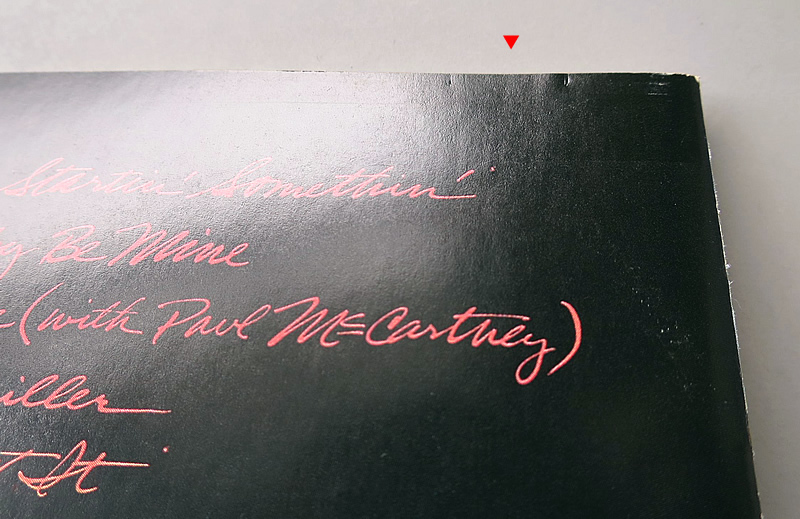 Startin' Somethin'
Be Mine
(with Paul McCartney)
iller
It